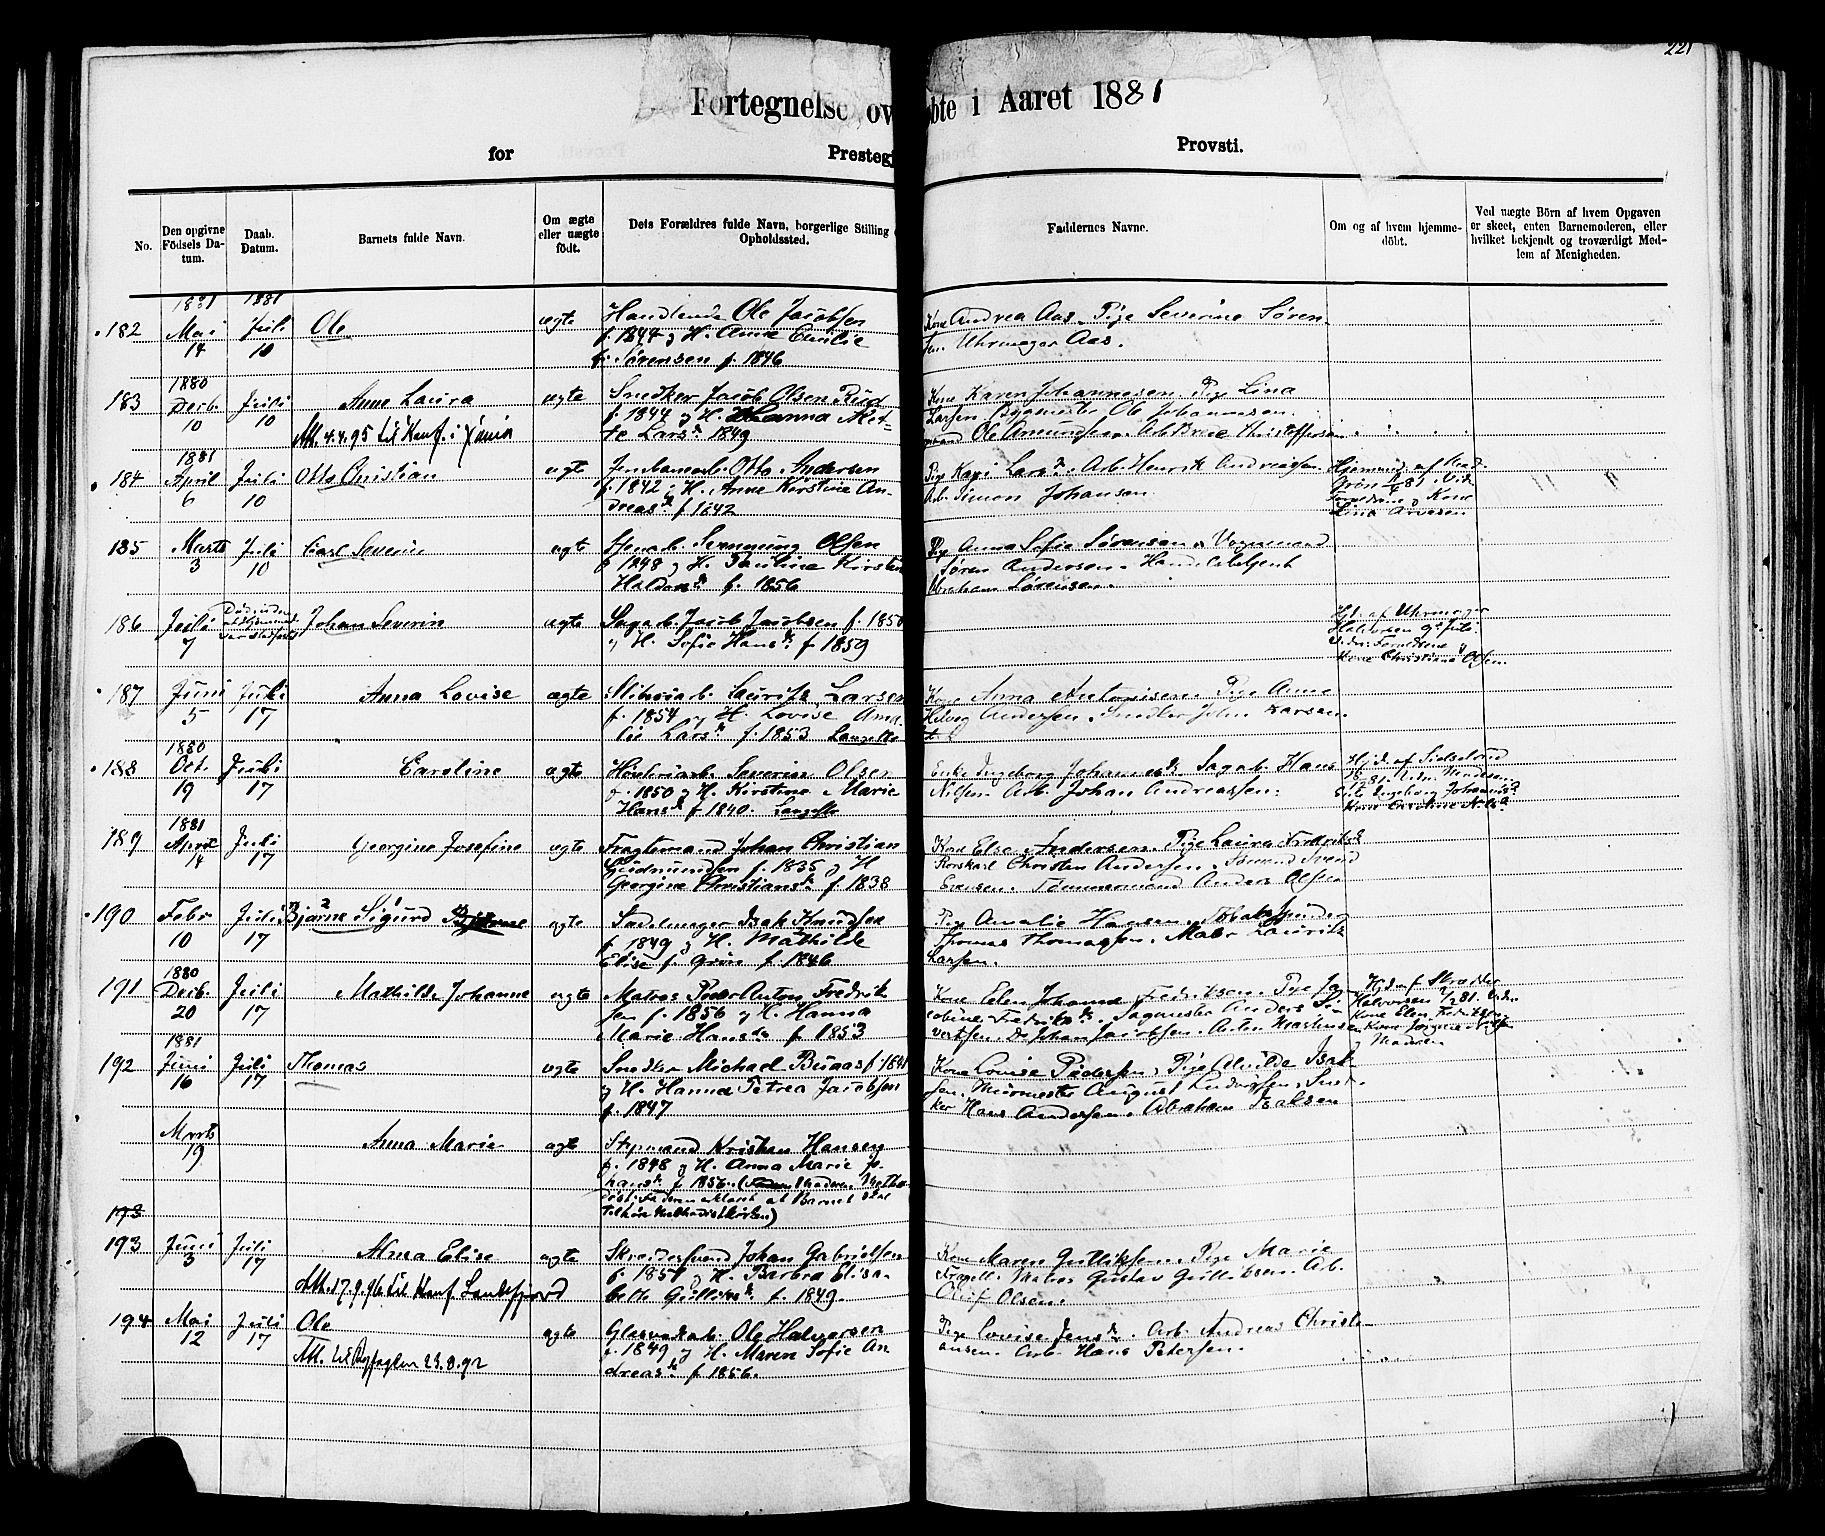 221
Fortegnelse ov bte i Aaret 1881
for Prestegj Provsti.
No.
Den opgivne Födsels Datum.
Daab. Datum.
Barnets fulde Navn.
Om ægte eller uægte födt.
Dets Forældres fulde Navn, borgerlige Stilling
Opholdssted.
Faddernes Navne.
Om og af hvem hjemmedöbt.
Ved uægte Börn af hvem Opgaven er skeet, enten Barnemoderen, eller hvilket bekjendt og troværdigt Medlem af Menigheden.
182 1881 Mai 14 1881 Juli 10 Ole ægte Handlende Ole Jacobsen
f. 1844 og H. Anna Emilie
f. Sørensen f. 1846
Kone Andrea Aas. Pige Severine Søren-
sen. Uhrmager Aas.
183 1880 Decb. 10 Juli 10 Anne Laura ægte Snedker Jacob Olsen Rud
f. 1844 og H. Hanna Met-
te Larsd. 1849
Att. 4.4.95 til Konf. i Xania
Kone Karen Johannesen. Pige Lina
Larsen. Bygmester Ole Johannesen.
Ole Amundsen. Arb. Christoffersen
184 1881 April 6 Juli 10 Otto Christian ægte Jernbanearb. Otto Andersen
f. 1842 og H. Anne Kirstine An-
dreasd. f. 1842
Pige Kari Larsd. Arb. Henrik Andreassen
Arb. Simon Johansen.
185 Marts 3 Juli 10 Carl Severin ægte Svennung Olsen
f. 1848 og H. Pauline Kirstine
Haldorsd. f. 1856
Pige Anna Sofie Sørensen. Vognmand
Søren Andersen. Handelsbetjent
Abraham Sørensen.
186 Juli 7 Johan Severin ægte Sagarb. Jacob Jacobsen f. 1850
og H. Sofie Hansd. f. 1859
Hjd. af Uhrmager
Halvorsen 9de Juli.
Vidn. Forældrene og
Kone Christiane Olsen.
187 Juni 5 Juli 17 Anna Lovise ægte Laurits Larsen
f. 1854 og H. Lovise Ama-
lie Larsd. f. 1853
Kone Anna Antonisen. Pige Anne
Hedvig Andersen. Snedker John Larsen.
188 1880 Oct. 19 Juli 17 Caroline ægte Høvleriarb. Severin Olsen
f. 1850 og H. Kirstine Marie
Hansd. f. 1840.
Enke Ingeborg Johannesd. Sagarb. Hans
Nilsen. Arb. Johan Andreassen.
189 1881 April 14 Juli 17 Georgine Josefine ægte Fragtemand Johan Christian
Gudmundsen f. 1835 og H.
Georgine Christiansd. f. 1838
Kone Else Andersen. Pige Laura Fredriksd.
Christen Andersen. Sømand Svend
Evensen. Tømmermand Anders Olsen
190 Febr 10 Juli 17 Bjarne Sigurd ægte Sadelmager Isak Knudsen
f. 1849 og H. Mathilde
Elise f. Grön f. 1846
Pige Amalie Hansen. Tobakspinder
Thomas Thomassen. Maler Laurits
Larsen.
191 1880 Decb. 20 Juli 17 Mathilde Johanne ægte Matros Peder Anton Fredrik-
sen f. 1856 og H. Hanna
Marie Hansd. f. 1853
Kone Elen Johanne Fredriksen. Pige Ja-
cobine Fredriksd. Sagmester Anders Si-
vertsen. Do Johan Jacobsen. Anton Martinsen
Hjd. af Skrædder
Halvorsen 2/2 81. Vidn.
Kone Elen Fredriksen
192 1881 Juni 16 Juli 17 Thomas ægte Snedker Michael Buaas f. 1841
og H. Hanna Petrea Jacobsen
f. 1847
Kone Lovise Pedersen. Pige Alvilde Isak-
sen. Murmester August Andersen. Sned-
ker Hans Andersen. Abraham Isaksen
Marts 19 Anna Marie ægte Styrmand Kristian Hansen
f. 1848 og H. Anna Marie Jo-
hansd. f. 1856.
193
193 Juni 3 Juli 17 Anna Elise ægte Skræddersvend Johan Gabrielsen
f. 1851 og H. Barbra Elisa-
beth Gulliksd. f. 1849.
Att. 17.9.96 til Konf. Sandefjord
Kone Maren Gulliksen. Pige Marie
Matros Gustav Gulliksen. Arb.
Oluf Olsen.
194 Mai 12 Juli 17 Ole ægte Ole Halvorsen
f. 1849 og H. Maren Sofie An-
dreasd. f. 1856.
Att. til Byfogden 23.8.92
Pige Lovise Jensd. Arb. Andreas Christi-
ansen. Arb. Hans Petersen.